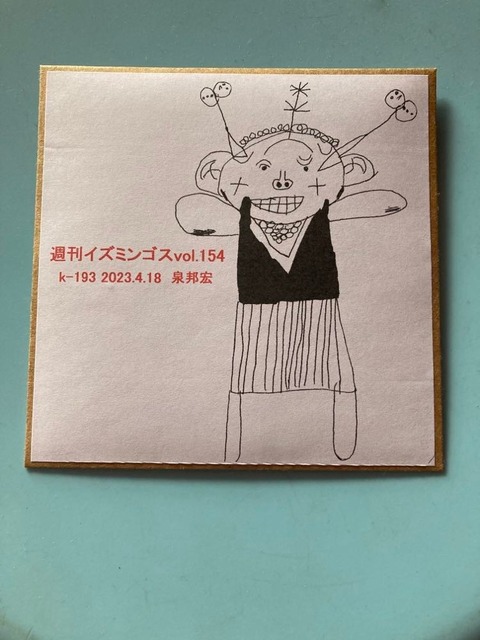 週刊イズミンゴスvol.154
k-193 2023.4.18 泉邦宏